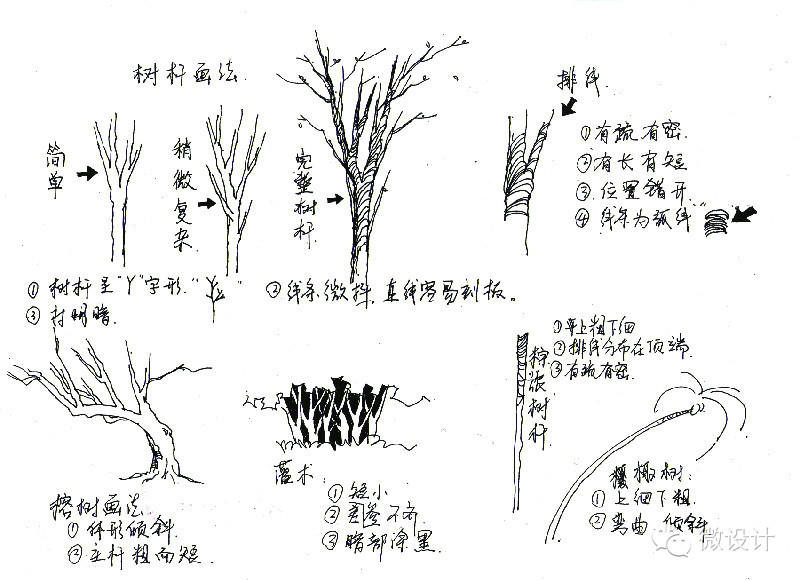 树杆画法
排线
简单
稍微复杂
完整树杆
①有疏有密.
②有长有短
③.位置错开
④线条为弧线"
①树杆呈"Y"字形."
"
②线条微抖，直线容易刻板。
③ 打明暗.
①上粗下细
②排线分布在顶端.
③有疏有密.
棕榈树杆
榕树画法
①体形倾斜
②主杆粗而短.
灌木:
①短小
②参 不齐
③暗部涂黑
树:
①上细下粗.
②弯曲 倾斜
微设计